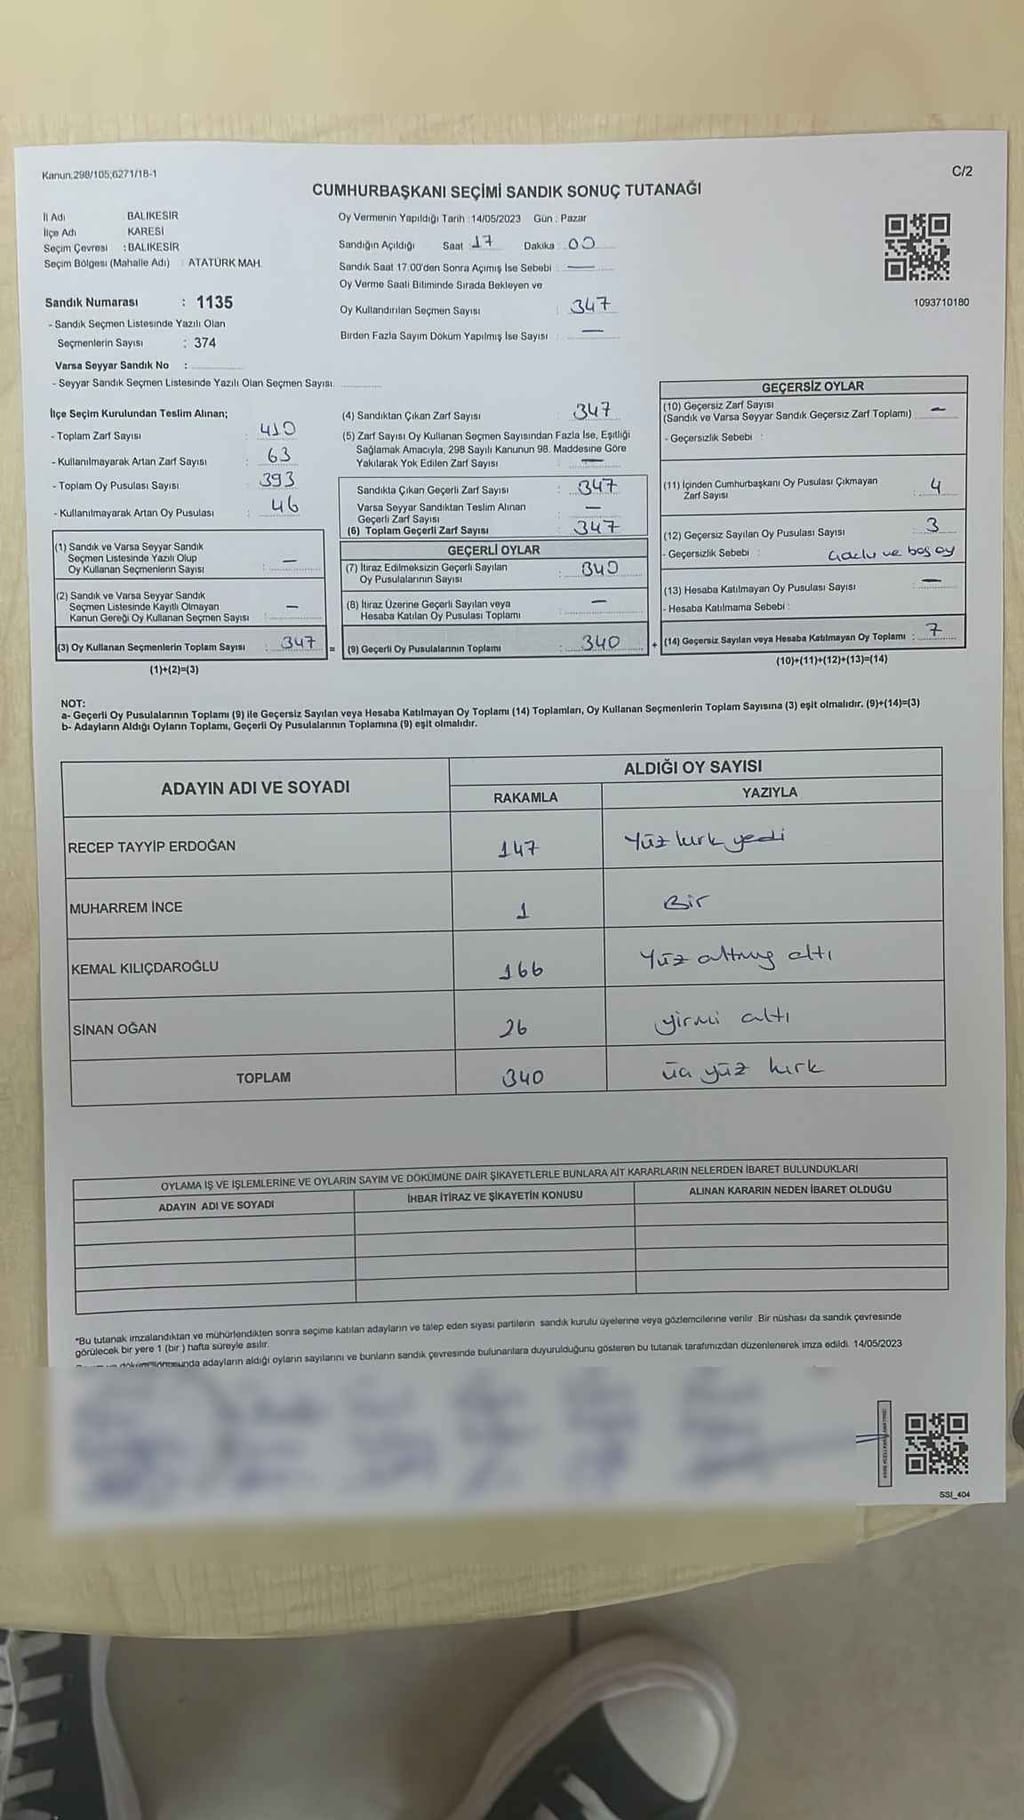 Kanun;298/105;6271/18-1
C/2
CUMHURBAŞKANI SEÇİMİ SANDIK SONUÇ TUTANAĞI
İl Adı BALIKESİR
İlçe Adı KARESİ
Seçim Çevresi : BALIKESİR
Seçim Bölgesi (Mahalle Adı) : ATATÜRK MAH.
Sandık Numarası : 1135
- Sandık Seçmen Listesinde Yazılı Olan
Seçmenlerin Sayısı : 374
Varsa Seyyar Sandık No :
- Seyyar Sandık Seçmen Listesinde Yazılı Olan Seçmen Sayısı
Oy Vermenin Yapıldığı Tarih : 14/05/2023 Gün : Pazar
Sandığın Açıldığı Saat 17 Dakika 00
Sandık Saat 17:00'den Sonra Açımış İse Sebebi —
Oy Verme Saati Bitiminde Sırada Bekleyen ve
Oy Kullandırılan Seçmen Sayısı : 347
Birden Fazla Sayım Döküm Yapılmış İse Sayısı : —
1093710180
İlçe Seçim Kurulundan Teslim Alınan;
- Toplam Zarf Sayısı : 410
- Kullanılmayarak Artan Zarf Sayısı : 63
- Toplam Oy Pusulası Sayısı : 393
- Kullanılmayarak Artan Oy Pusulası : 46
(1) Sandık ve Varsa Seyyar Sandık
Seçmen Listesinde Yazılı Olup
Oy Kullanan Seçmenlerin Sayısı : —
(2) Sandık ve Varsa Seyyar Sandık
Seçmen Listesinde Kayıtlı Olmayan
Kanun Gereği Oy Kullanan Seçmen Sayısı : —
(3) Oy Kullanan Seçmenlerin Toplam Sayısı : 347
(1)+(2)=(3)
(4) Sandıktan Çıkan Zarf Sayısı 347
(5) Zarf Sayısı Oy Kullanan Seçmen Sayısından Fazla İse, Eşitliği
Sağlamak Amacıyla, 298 Sayılı Kanunun 98. Maddesine Göre
Yakılarak Yok Edilen Zarf Sayısı —
Sandıkta Çıkan Geçerli Zarf Sayısı : 347
Varsa Seyyar Sandıktan Teslim Alınan
Geçerli Zarf Sayısı —
(6) Toplam Geçerli Zarf Sayısı : 347
GEÇERLİ OYLAR
(7) İtiraz Edilmeksizin Geçerli Sayılan
Oy Pusulalarının Sayısı : 340
(8) İtiraz Üzerine Geçerli Sayılan veya
Hesaba Katılan Oy Pusulası Toplamı : —
= (9) Geçerli Oy Pusulalarının Toplamı : 340
GEÇERSİZ OYLAR
(10) Geçersiz Zarf Sayısı
(Sandık ve Varsa Seyyar Sandık Geçersiz Zarf Toplamı) : —
- Geçersizlik Sebebi :
(11) İçinden Cumhurbaşkanı Oy Pusulası Çıkmayan
Zarf Sayısı : 4
(12) Geçersiz Sayılan Oy Pusulası Sayısı : 3
- Geçersizlik Sebebi : ve boş oy
(13) Hesaba Katılmayan Oy Pusulası Sayısı : —
- Hesaba Katılmama Sebebi :
+ (14) Geçersiz Sayılan veya Hesaba Katılmayan Oy Toplamı : 7
(10)+(11)+(12)+(13)=(14)
NOT:
a- Geçerli Oy Pusulalarının Toplamı (9) ile Geçersiz Sayılan veya Hesaba Katılmayan Oy Toplamı (14) Toplamları, Oy Kullanan Seçmenlerin Toplam Sayısına (3) eşit olmalıdır. (9)+(14)=(3)
b- Adayların Aldığı Oyların Toplamı, Geçerli Oy Pusulalarının Toplamına (9) eşit olmalıdır.
ADAYIN ADI VE SOYADI
ALDIĞI OY SAYISI
RAKAMLA YAZIYLA
RECEP TAYYİP ERDOĞAN 147 Yüz kırk yedi
MUHARREM İNCE 1 Bir
KEMAL KILIÇDAROĞLU 166 Yüz altmış altı
SİNAN OĞAN 26 yirmi altı
TOPLAM 340 üç yüz kırk
OYLAMA İŞ VE İŞLEMLERİNE VE OYLARIN SAYIM VE DÖKÜMÜNE DAİR ŞİKAYETLERLE BUNLARA AİT KARARLARIN NELERDEN İBARET BULUNDUKLARI
ADAYIN ADI VE SOYADI İHBAR İTİRAZ VE ŞİKAYETİN KONUSU ALINAN KARARIN NEDEN İBARET OLDUĞU
*Bu tutanak imzalandıktan ve mühürlendikten sonra seçime katılan adayların ve talep eden siyasi partilerin sandık kurulu üyelerine veya gözlemcilerine verilir. Bir nüshası da sandık çevresinde
görülecek bir yere 1 (bir) hafta süreyle asılır.
adayların aldığı oyların sayılarını ve bunların sandık çevresinde bulunanlara duyurulduğunu gösteren bu tutanak tarafımızdan düzenlenerek imza edildi. 14/05/2023
SSI_404